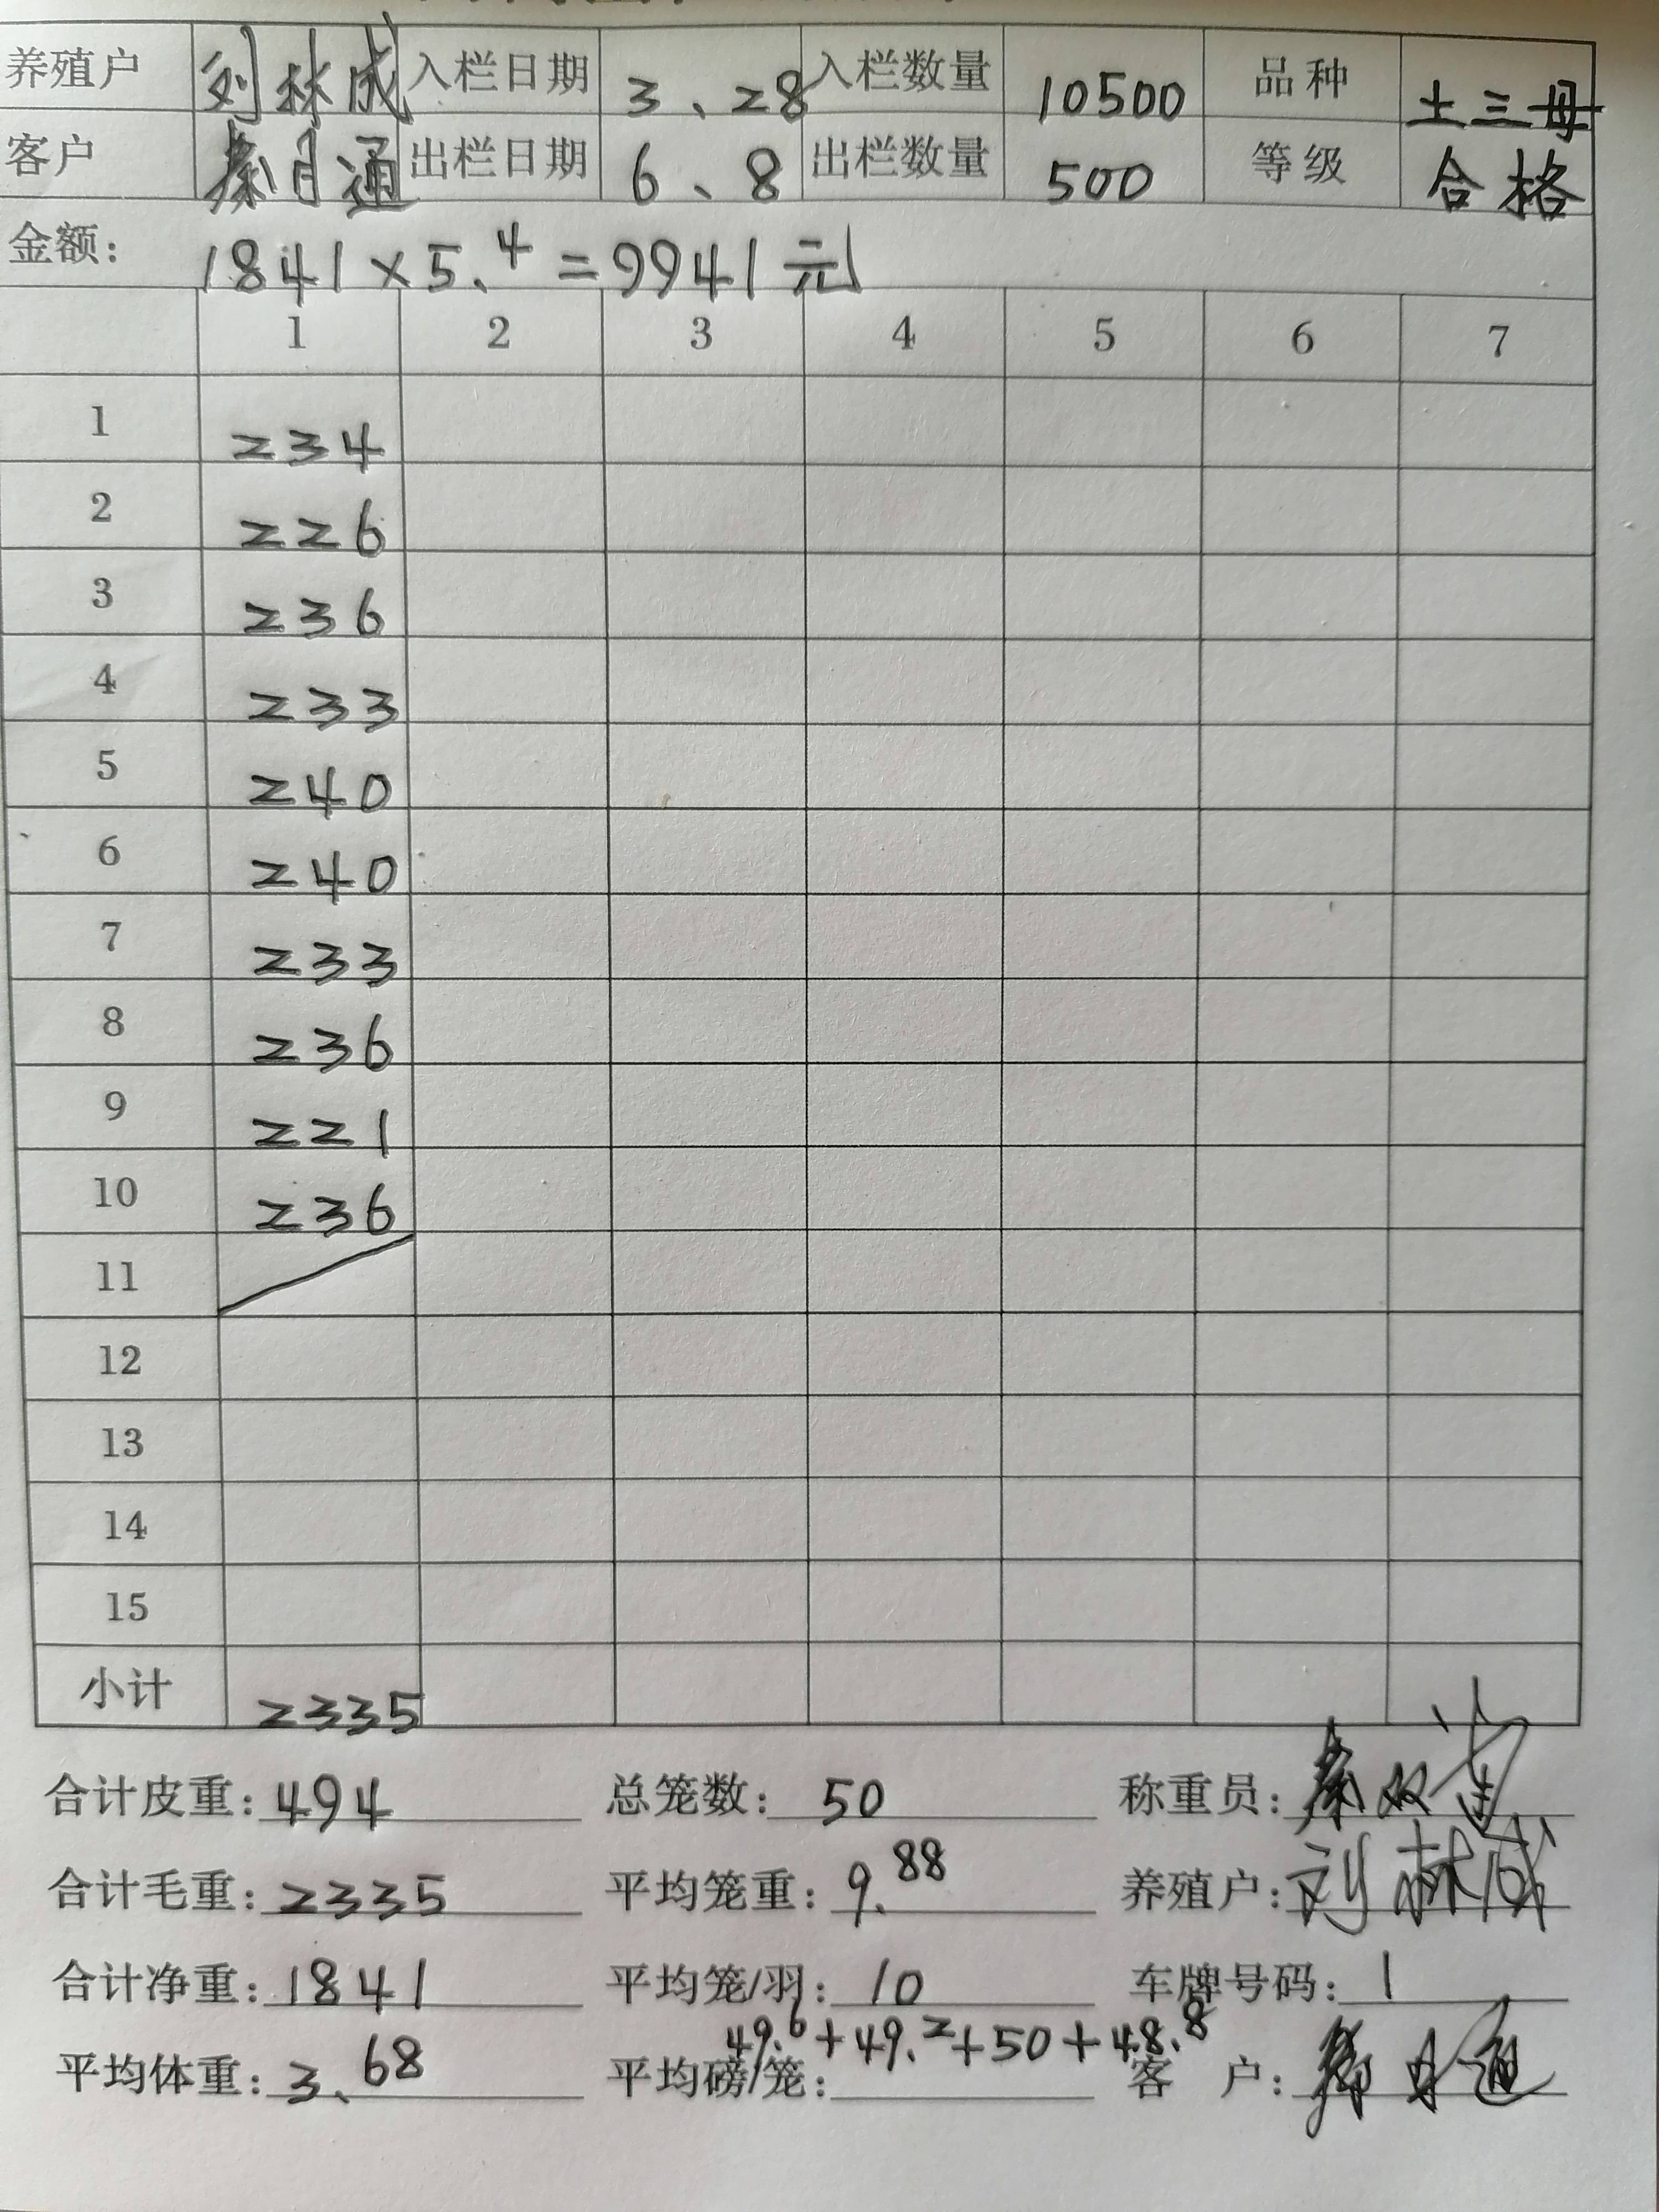 养殖户 刘林成 入栏日期 3、28 入栏数量 10500 品种 土三母
客户 秦月通 出栏日期 6、8 出栏数量 500 等级 合格
金额： 1841×5.4=9941元
1 2 3 4 5 6 7
1 234
2 226
3 236
4 233
5 240
6 240
7 233
8 236
9 221
10 236
11
12
13
14
15
小计 2335
合计皮重：494 总笼数：50 称重员：秦双
合计毛重：2335 平均笼重：9.88 养殖户：刘林成
合计净重：1841 平均笼/羽：10 车牌号码：1
49.6+49.2+50+48.8
平均体重：3、68 平均磅/笼： 客 户：秦月通